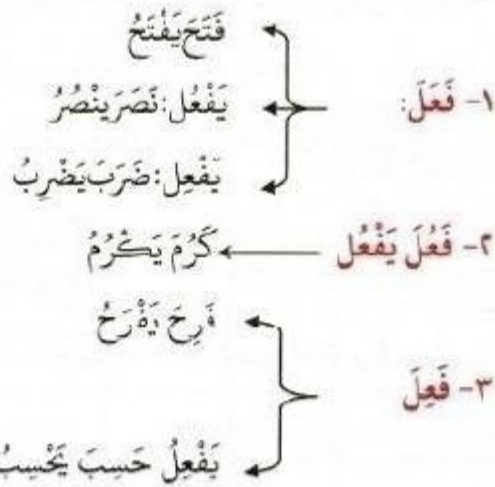 فَتَحَ يَفْتَحُ
١- فَعَلَ: يَفْعُل: نَصَرَ يَنْصُرُ
يَفْعِل: ضَرَبَ يَضْرِبُ
٢- فَعُلَ يَفْعُل كَرُمَ يَكْرُمُ
فَرِحَ يَفْرَحُ
٣- فَعِلَ
يَفْعِلُ حَسِبَ يَحْسِبُ